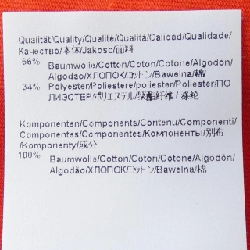 Qualität/Quality/Qualité/Qualità/Calidad/Qualidade/
Качество/本体/Jakość/面料
66% Baumwolle/Cotton/Coton/Cotone/Algodón/
Algodão/ХЛОПОК/コットン/Bawełna/棉
34% Polyester/Poliestere/poliester/Poliéster/ПО
ЛИЭСТЕР/ポリエステル/聚酯纤维/涤纶
Komponenten/Components/Contenu/Componenti/
Componentes/Componentes/Компоненты/別布
/Komponenty/成分
100% Baumwolle/Cotton/Coton/Cotone/Algodón/
Algodão/ХЛОПОК/コットン/Bawełna/棉